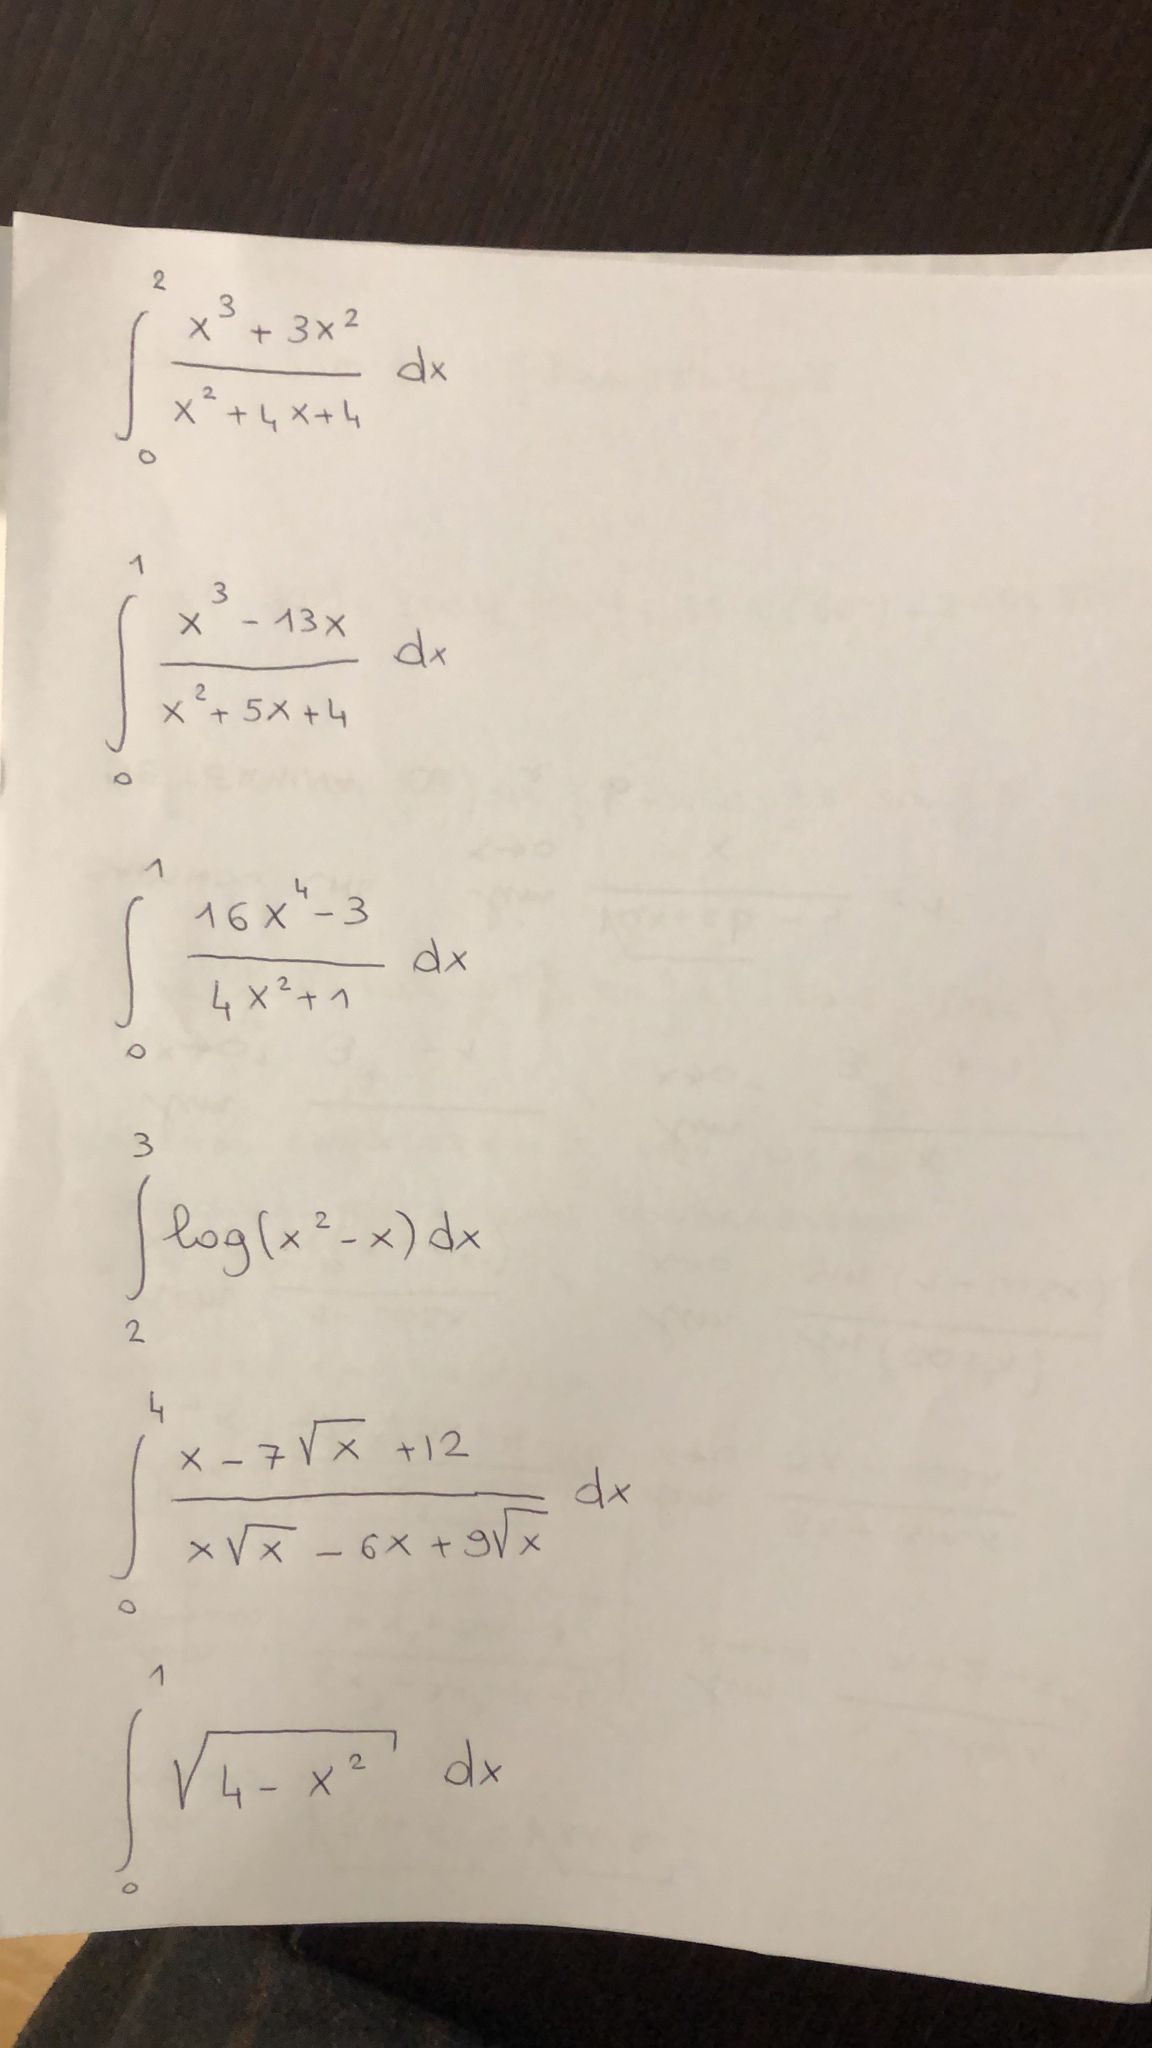 ∫₀² (x³ + 3x²)/(x² + 4x + 4) dx
∫₀¹ (x³ - 13x)/(x² + 5x + 4) dx
∫₀¹ (16x⁴ - 3)/(4x² + 1) dx
∫₂³ log(x² - x) dx
∫₀⁴ (x - 7√x + 12)/(x√x - 6x + 9√x) dx
∫₀¹ √(4 - x²) dx